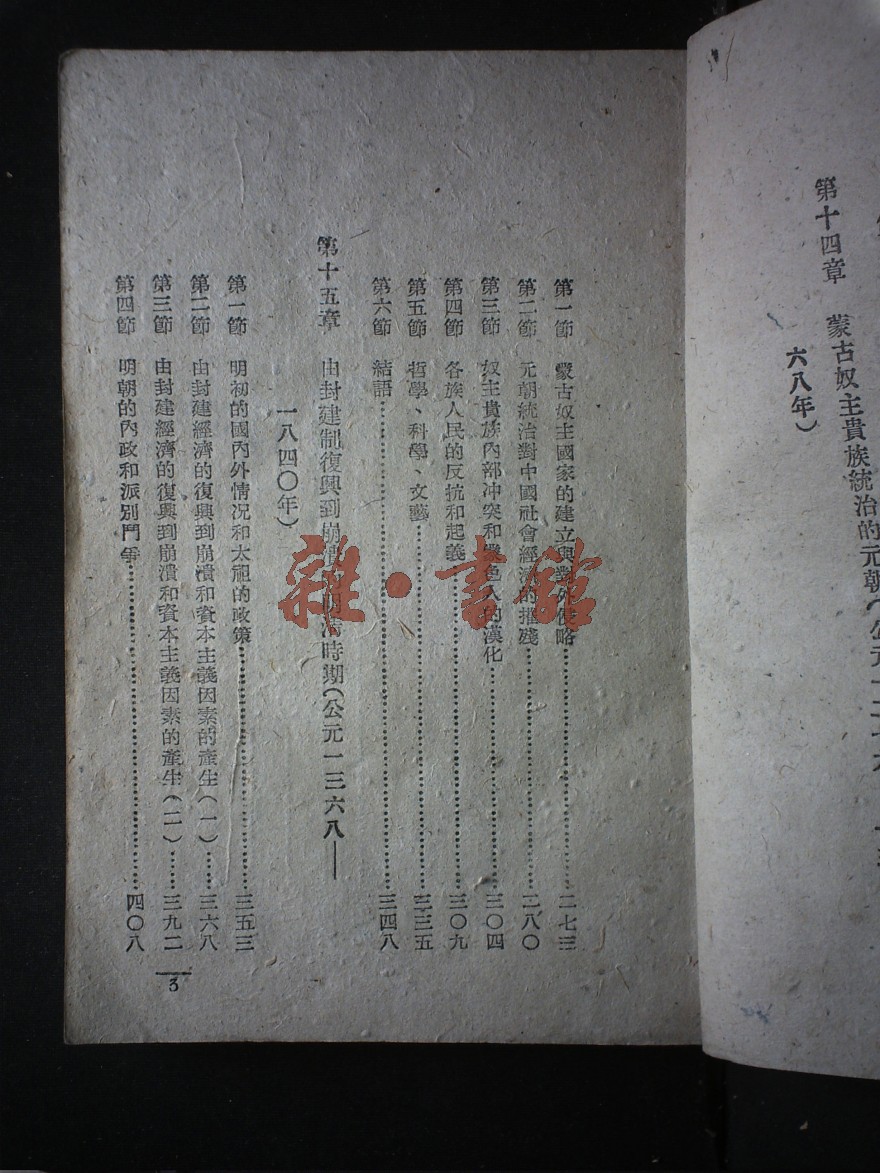 第十四章 蒙古奴主貴族統治的元朝(公元一二七
六八年)
第一節 蒙古奴主國家的建立與對外侵略……二七三
第二節 元朝統治對中國社會經濟的摧殘……二八〇
第三節 奴主貴族內部冲突和色人的漢化……三〇四
第四節 各族人民的反抗和起義……三〇九
第五節 哲學、科學、文藝……三三五
第六節 結語……三四八
第十五章 由封建制復興到崩潰的明清時期(公元一三六八—
一八四〇年)
第一節 明初的國內外情况和太祖的政策……三五三
第二節 由封建經濟的復興到崩潰和資本主義因素的產生(一)……三六八
第三節 由封建經濟的復興到崩潰和資本主義因素的產生(二)……三九二
第四節 明朝的內政和派別鬥爭……四〇八
3
雜·書館